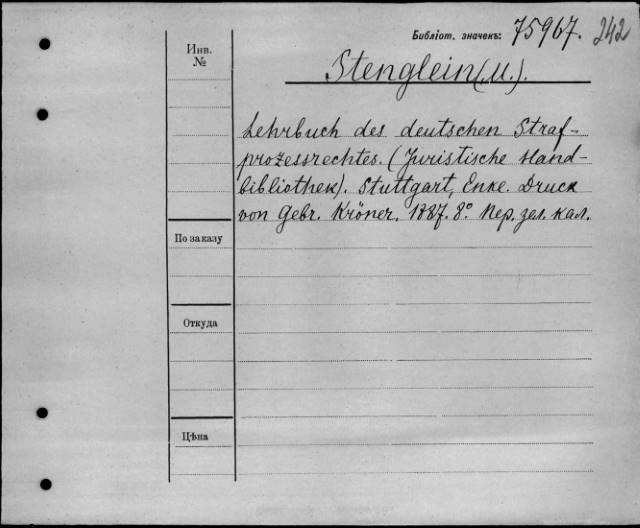 Библіот. значекъ: 75967. 242
Инв.
№
Stenglein (M.).
Lehrbuch des deutschen Straf-
prozessrechtes. (Juristische Hand-
bibliothek). Stuttgart, Enke. Druck
von Gebr. Kröner. 1887. 8° Пер. зел. кал.
По заказу
Откуда
Цѣна